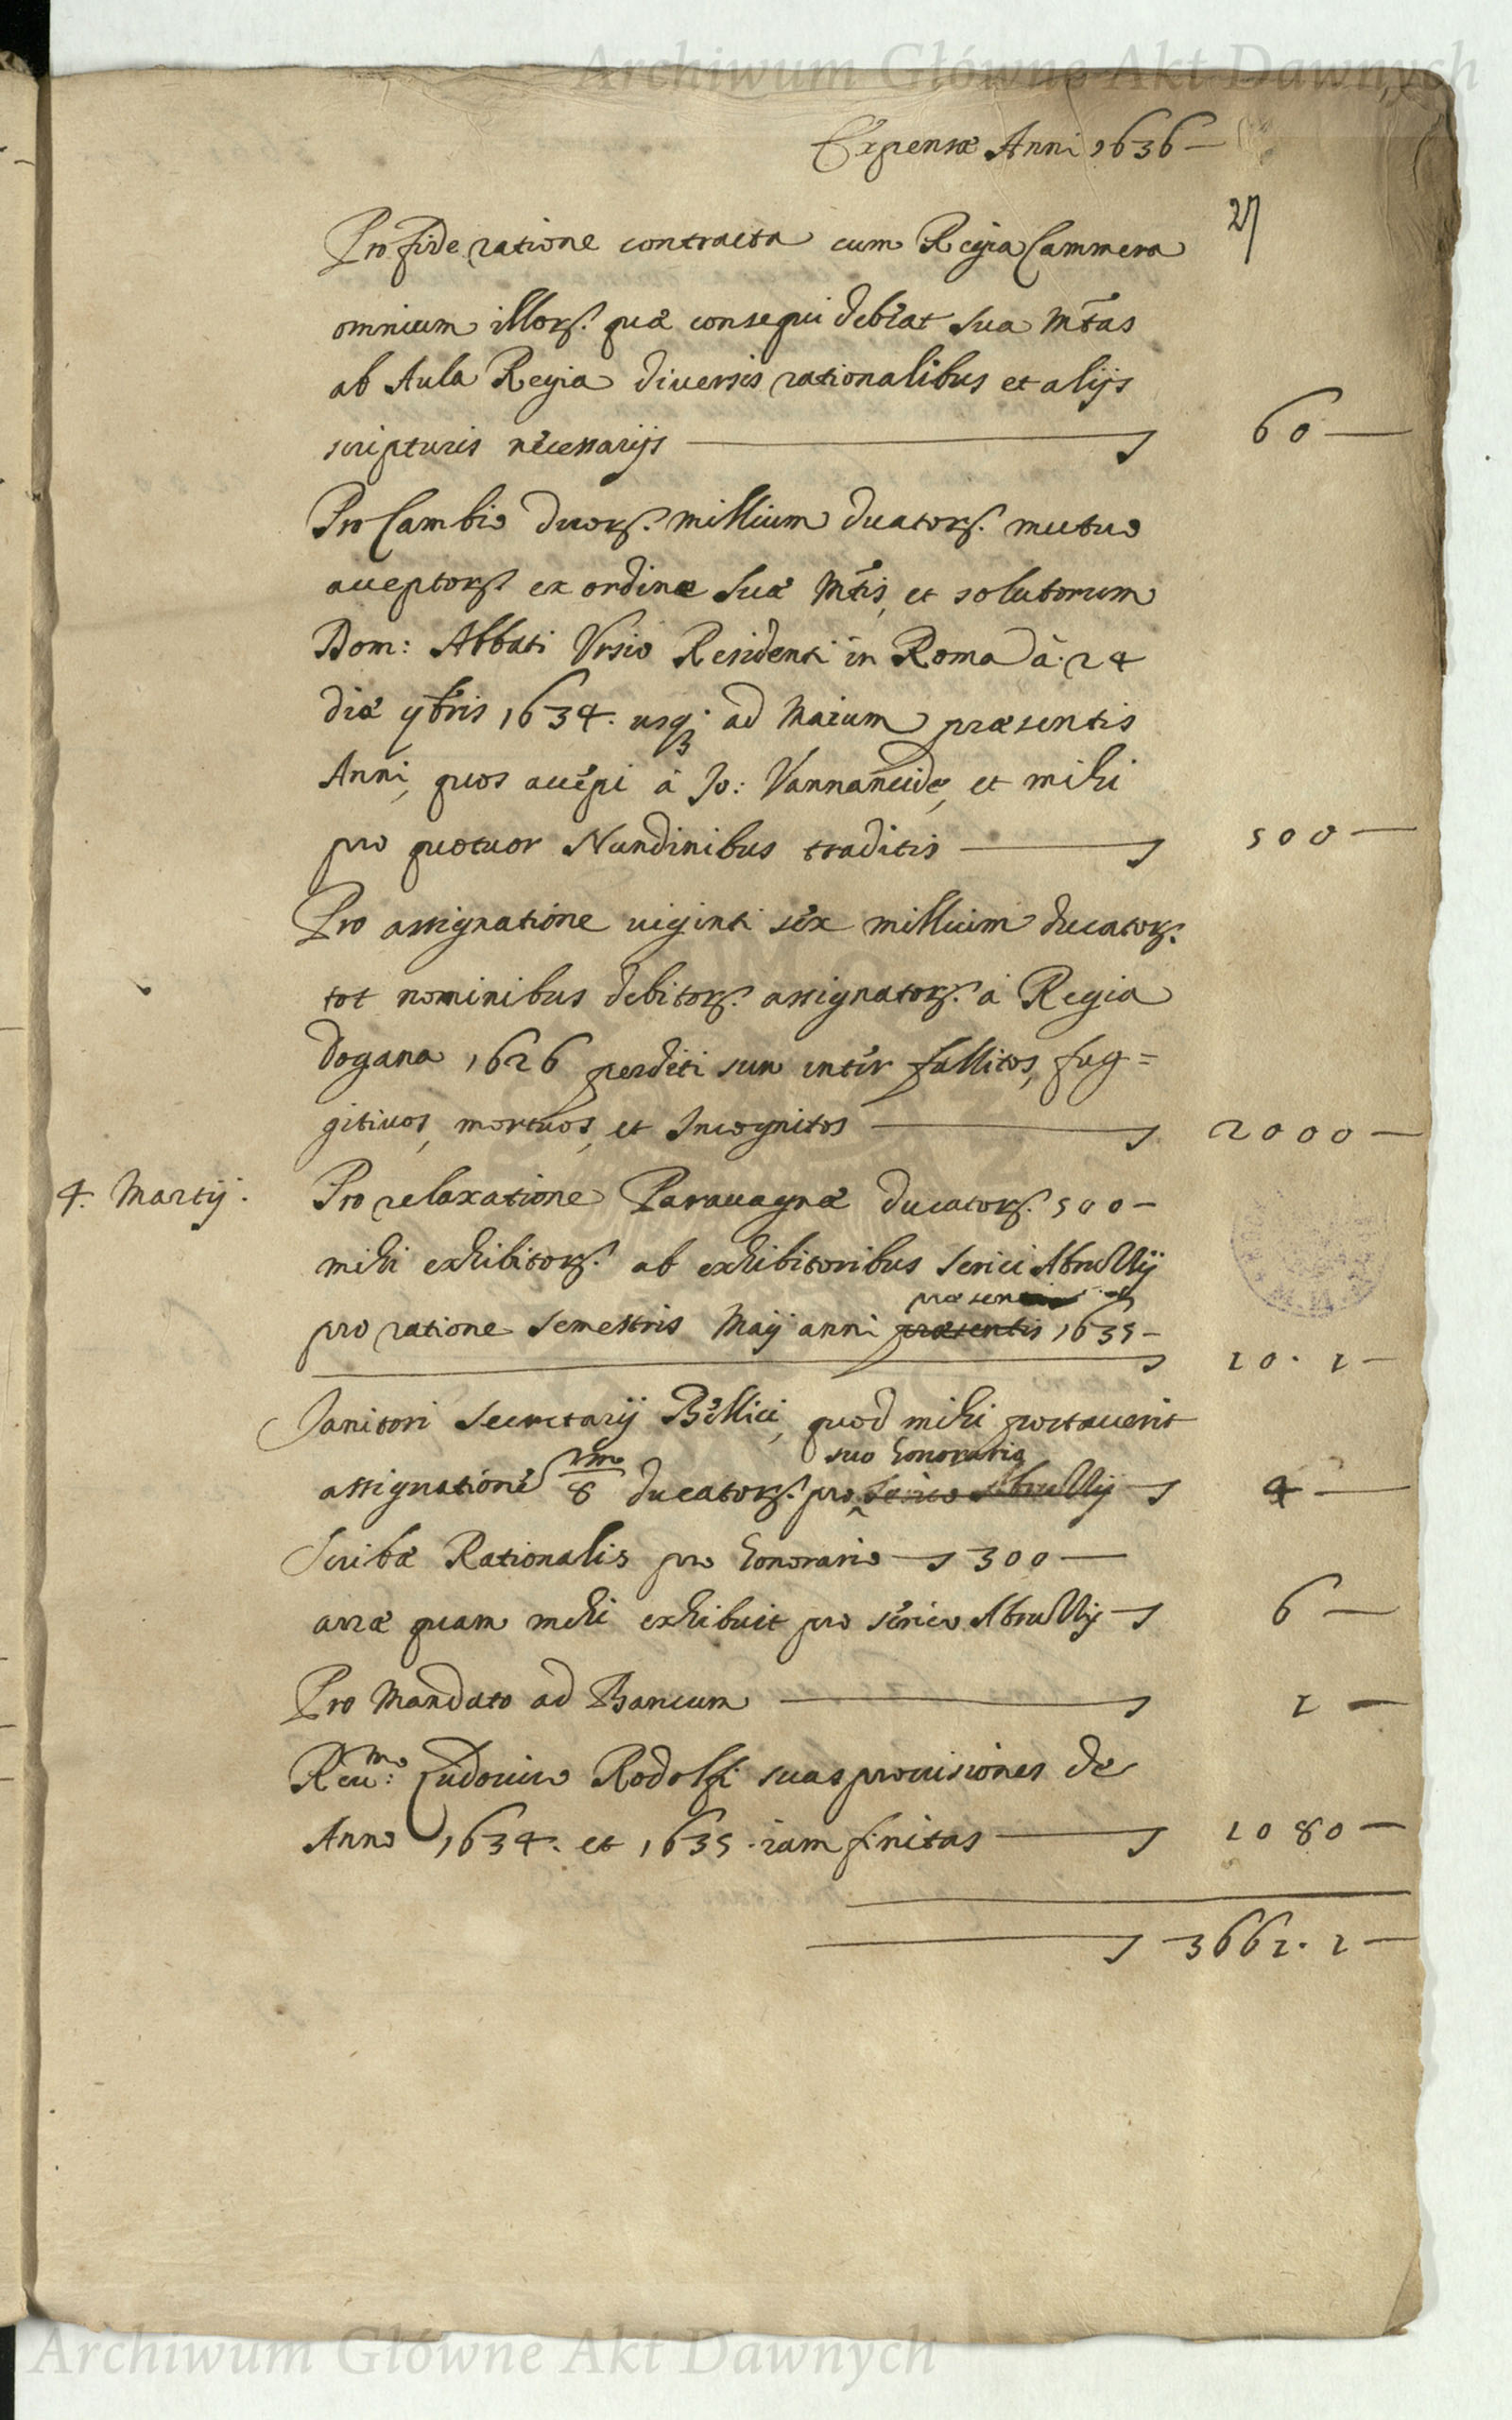 Archiwum Główne Akt Dawnych
Expensæ Anni 1636 —
27
Pro fide ratione contracta cum Regia Cammera
omnium illorꝝ. quæ consequi debeat Sua Mtas
ab Aula Regia diversis rationalibus et alijs
scripturis necessarijs — 60 —
Pro Cambio duorꝝ. millium duatorꝝ. mutuo
acceptorꝝ ex ordine Suæ Mtis, et solutorum
Dom: Abbati Vrsio Residenti in Roma à 24
die 9bris 1634. usqꝫ ad Maium præsentis
Anni, quos accepi à Jo: et mihi
pro quotuor Nundinibus traditis — 500 —
Pro assignatione viginti sex millium ducatorꝝ.
tot nominibus debitorꝝ. assignatorꝝ. à Regia
dogana 1626 perditi sun inter fallitos, fug=
gitivos, mortuos, et Incognitos — 2000 —
4. Martij. Pro relaxatione Paravagnæ ducatorꝝ. 500 —
mihi exhibitorꝝ. ab exhibitoribus serici Abrullij
pro ratione semestris Maij anni præsentis 1635 —
— 10. 1 —
Janitori Secretarij Bellici, quod mihi portaverit
suo honorario
assignatione 8 ducatorꝝ. pro serico Abrullij — 4 —
Scribæ Rationalis pro honorario — 300 —
arræ quam mihi exhibuit pro serico Abrullij — 6 —
Pro Mandato ad Bancum — 1 —
Reu.mo: Ludovico Rodolfi suas provisiones de
Anno 1634. et 1635. iam finitas — 1080 —
— 3661. 1 —
Archiwum Główne Akt Dawnych